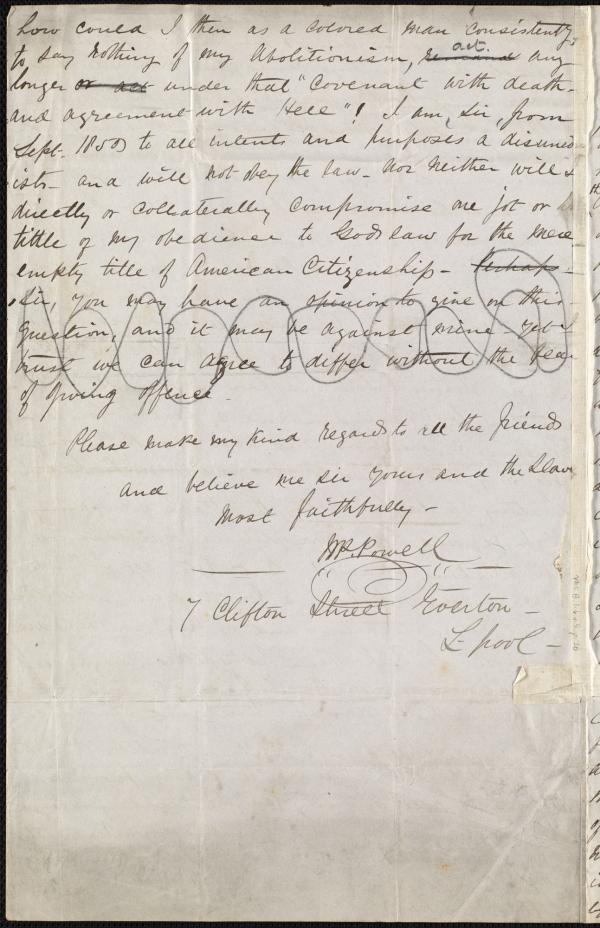 how could I then as a colored man consistently,
to say nothing of my Abolitionism, act any
longer under that "Covenant with death-
and agreement with Hell"! I am, Sir, from
Sept. 1850 to all intents and purposes a disunion
ists- and will not obey the law- nor neither will I
directly or collaterally compromise one jot or
tittle of my obedience to Gods law for the mere
empty title of American Citizenship- Perhaps-
Sir, you may have an opinion to give on this
question, and it may be against mine- yet I
trust we can agree to differ without the fear
of giving offence-
Please make my kind regards to all the friends
and believe me sir yours and the Slave
most faithfully-
Wm. P. Powell
7 Clifton Street Everton-
L-pool-